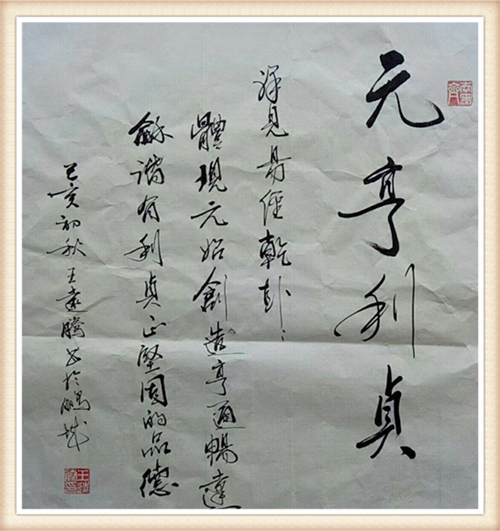 元亨利貞
詳見易經乾卦：
體現元始創造亨通暢達
龢諧有利貞正堅固的品德
己亥初秋王遠騰书於鵬城